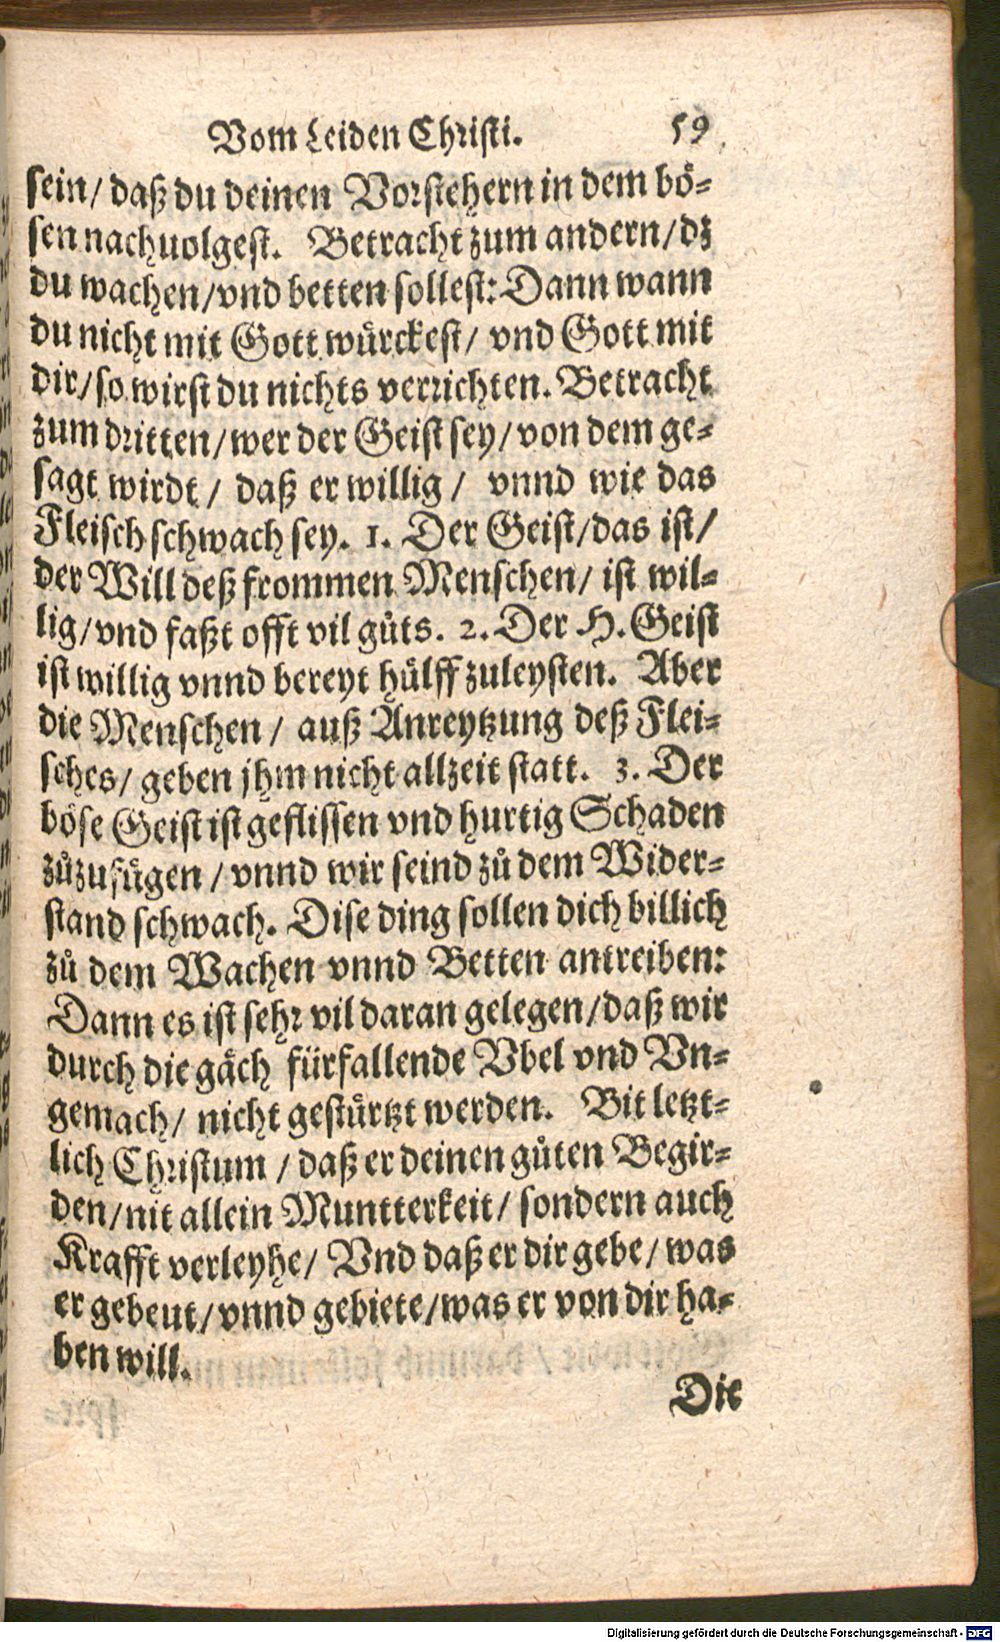 Vom Leiden Christi. 59
sein/ daß du deinen Vorstehern in dem bö-
sen nachuolgest. Betracht zum andern/ dz
du wachen/ vnd betten sollest: Dann wann
du nicht mit Gott würckest/ vnd Gott mit
dir/ so wirst du nichts verrichten. Betracht
zum dritten/ wer der Geist sey/ von dem ge-
sagt wirdt/ daß er willig/ vnnd wie das
Fleisch schwach sey. 1. Der Geist/ das ist/
der Will deß frommen Menschen/ ist wil-
lig/ vnd faßt offt vil gůts. 2. Der H. Geist
ist willig vnnd bereyt hülff zuleysten. Aber
die Menschen/ auß Anreytzung deß Flei-
sches/ geben jhm nicht allzeit statt. 3. Der
böse Geist ist geflissen vnd hurtig Schaden
zůzufügen/ vnnd wir seind zů dem Wider-
stand schwach. Dise ding sollen dich billich
zů dem Wachen vnnd Betten antreiben:
Dann es ist sehr vil daran gelegen/ daß wir
durch die gäch fürfallende Vbel vnd Vn-
gemach/ nicht gestürtzt werden. Bit letzt-
lich Christum/ daß er deinen gůten Begir-
den/ nit allein Muntterkeit/ sondern auch
Krafft verleyhe/ Vnd daß er dir gebe/ was
er gebeut/ vnnd gebiete/ was er von dir ha-
ben will.
Die
Digitalisierung gefördert durch die Deutsche Forschungsgemeinschaft - DFG